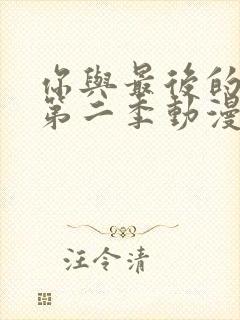 你與最後的
第二季動漫
汪令清